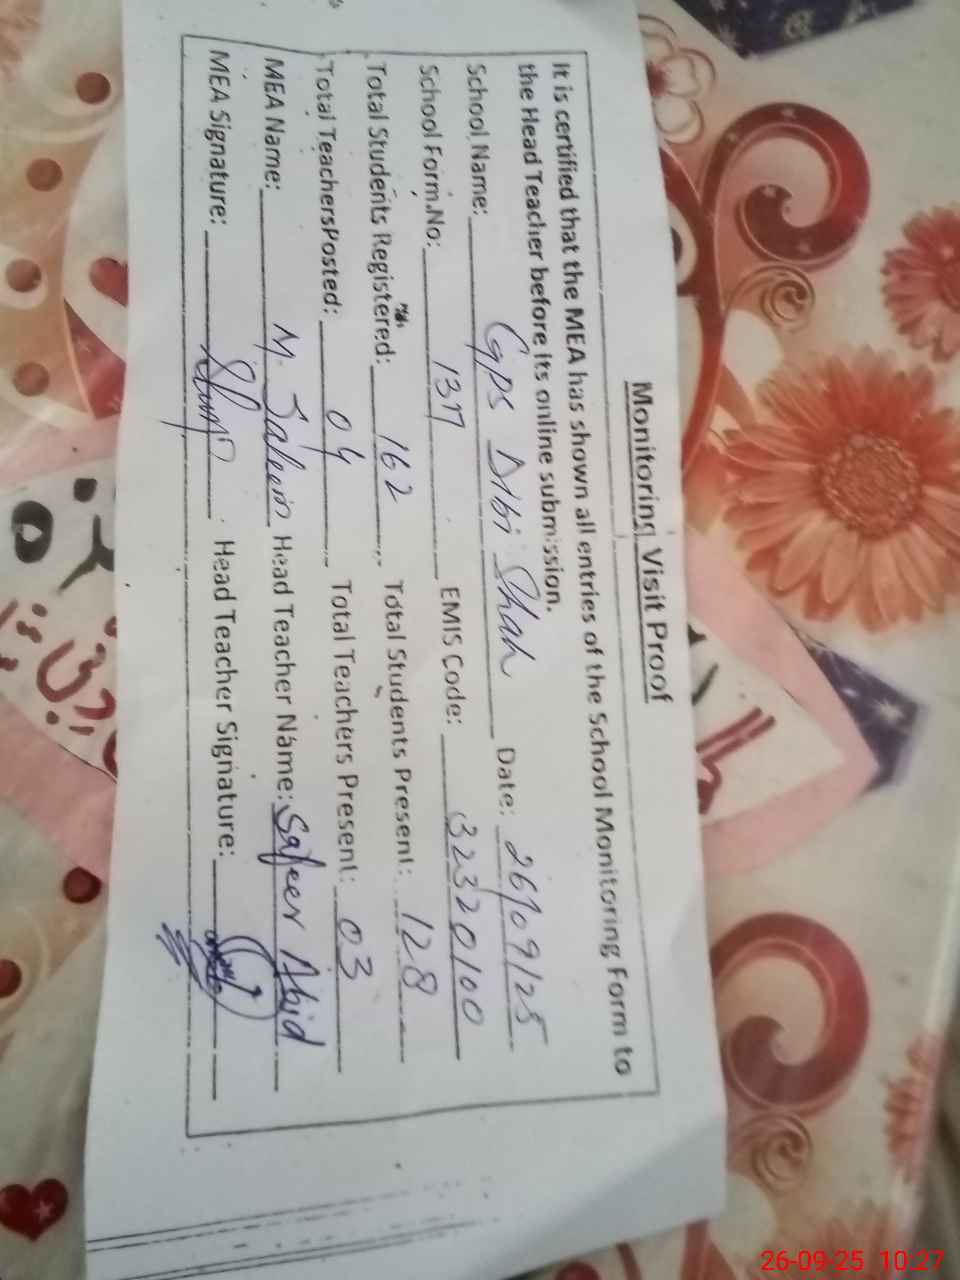 Monitoring Visit Proof
It is certified that the MEA has shown all entries of the School Monitoring Form to
the Head Teacher before its online submission.
School Name: GPS Dlbi Shah Date: 26/09/25
School Form.No: 1317 EMIS Code: 32320100
Total Students Registered: 162 Total Students Present: 128
Total TeachersPosted: 04 Total Teachers Present: 03
MEA Name: M. Saleem Head Teacher Name: Safeer Abid
MEA Signature: Head Teacher Signature:
26-09-25 10:27